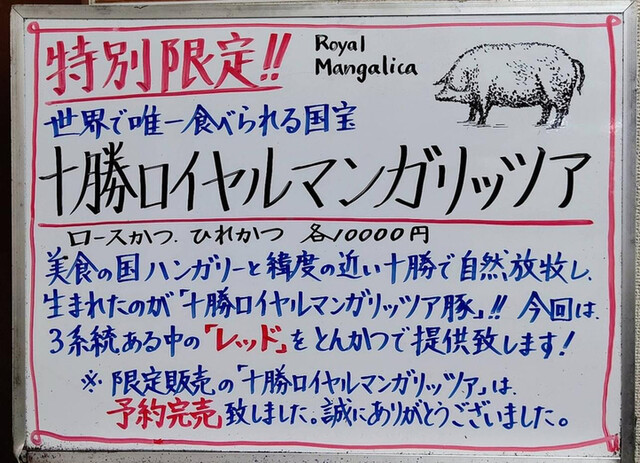 特別限定!!
Royal
Mangalica
世界で唯一食べられる国宝
十勝ロイヤルマンガリッツア
ロースかつ.ひれかつ 各10000円
美食の国ハンガリーと緯度の近い十勝で自然放牧し、
生まれたのが「十勝ロイヤルマンガリッツア豚」!! 今回は、
3系統ある中の「レッド」をとんかつで提供致します!
※限定販売の「十勝ロイヤルマンガリッツァ」は、
予約完売致しました。誠にありがとうございました。